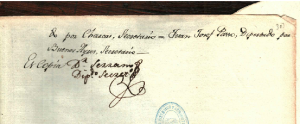 do por Charcas, Secretario — Juan José Passo, Diputado por
Buenos Ayres, Secretario —
Es Copia Dr. Serrano
Dip.º Secret.º